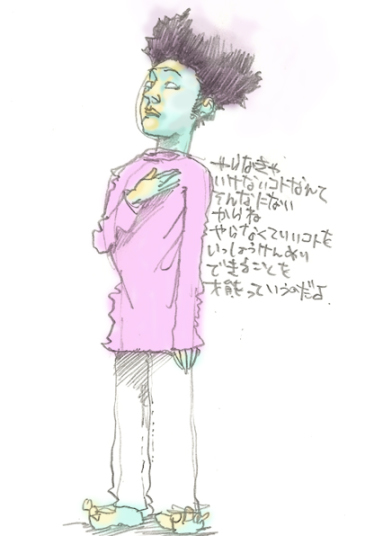 やりなきゃ
いけないコトなんて
そんなにない
からね
やらなくていいコトを
いっしょうけんめい
できることを
才能っていうのだよ